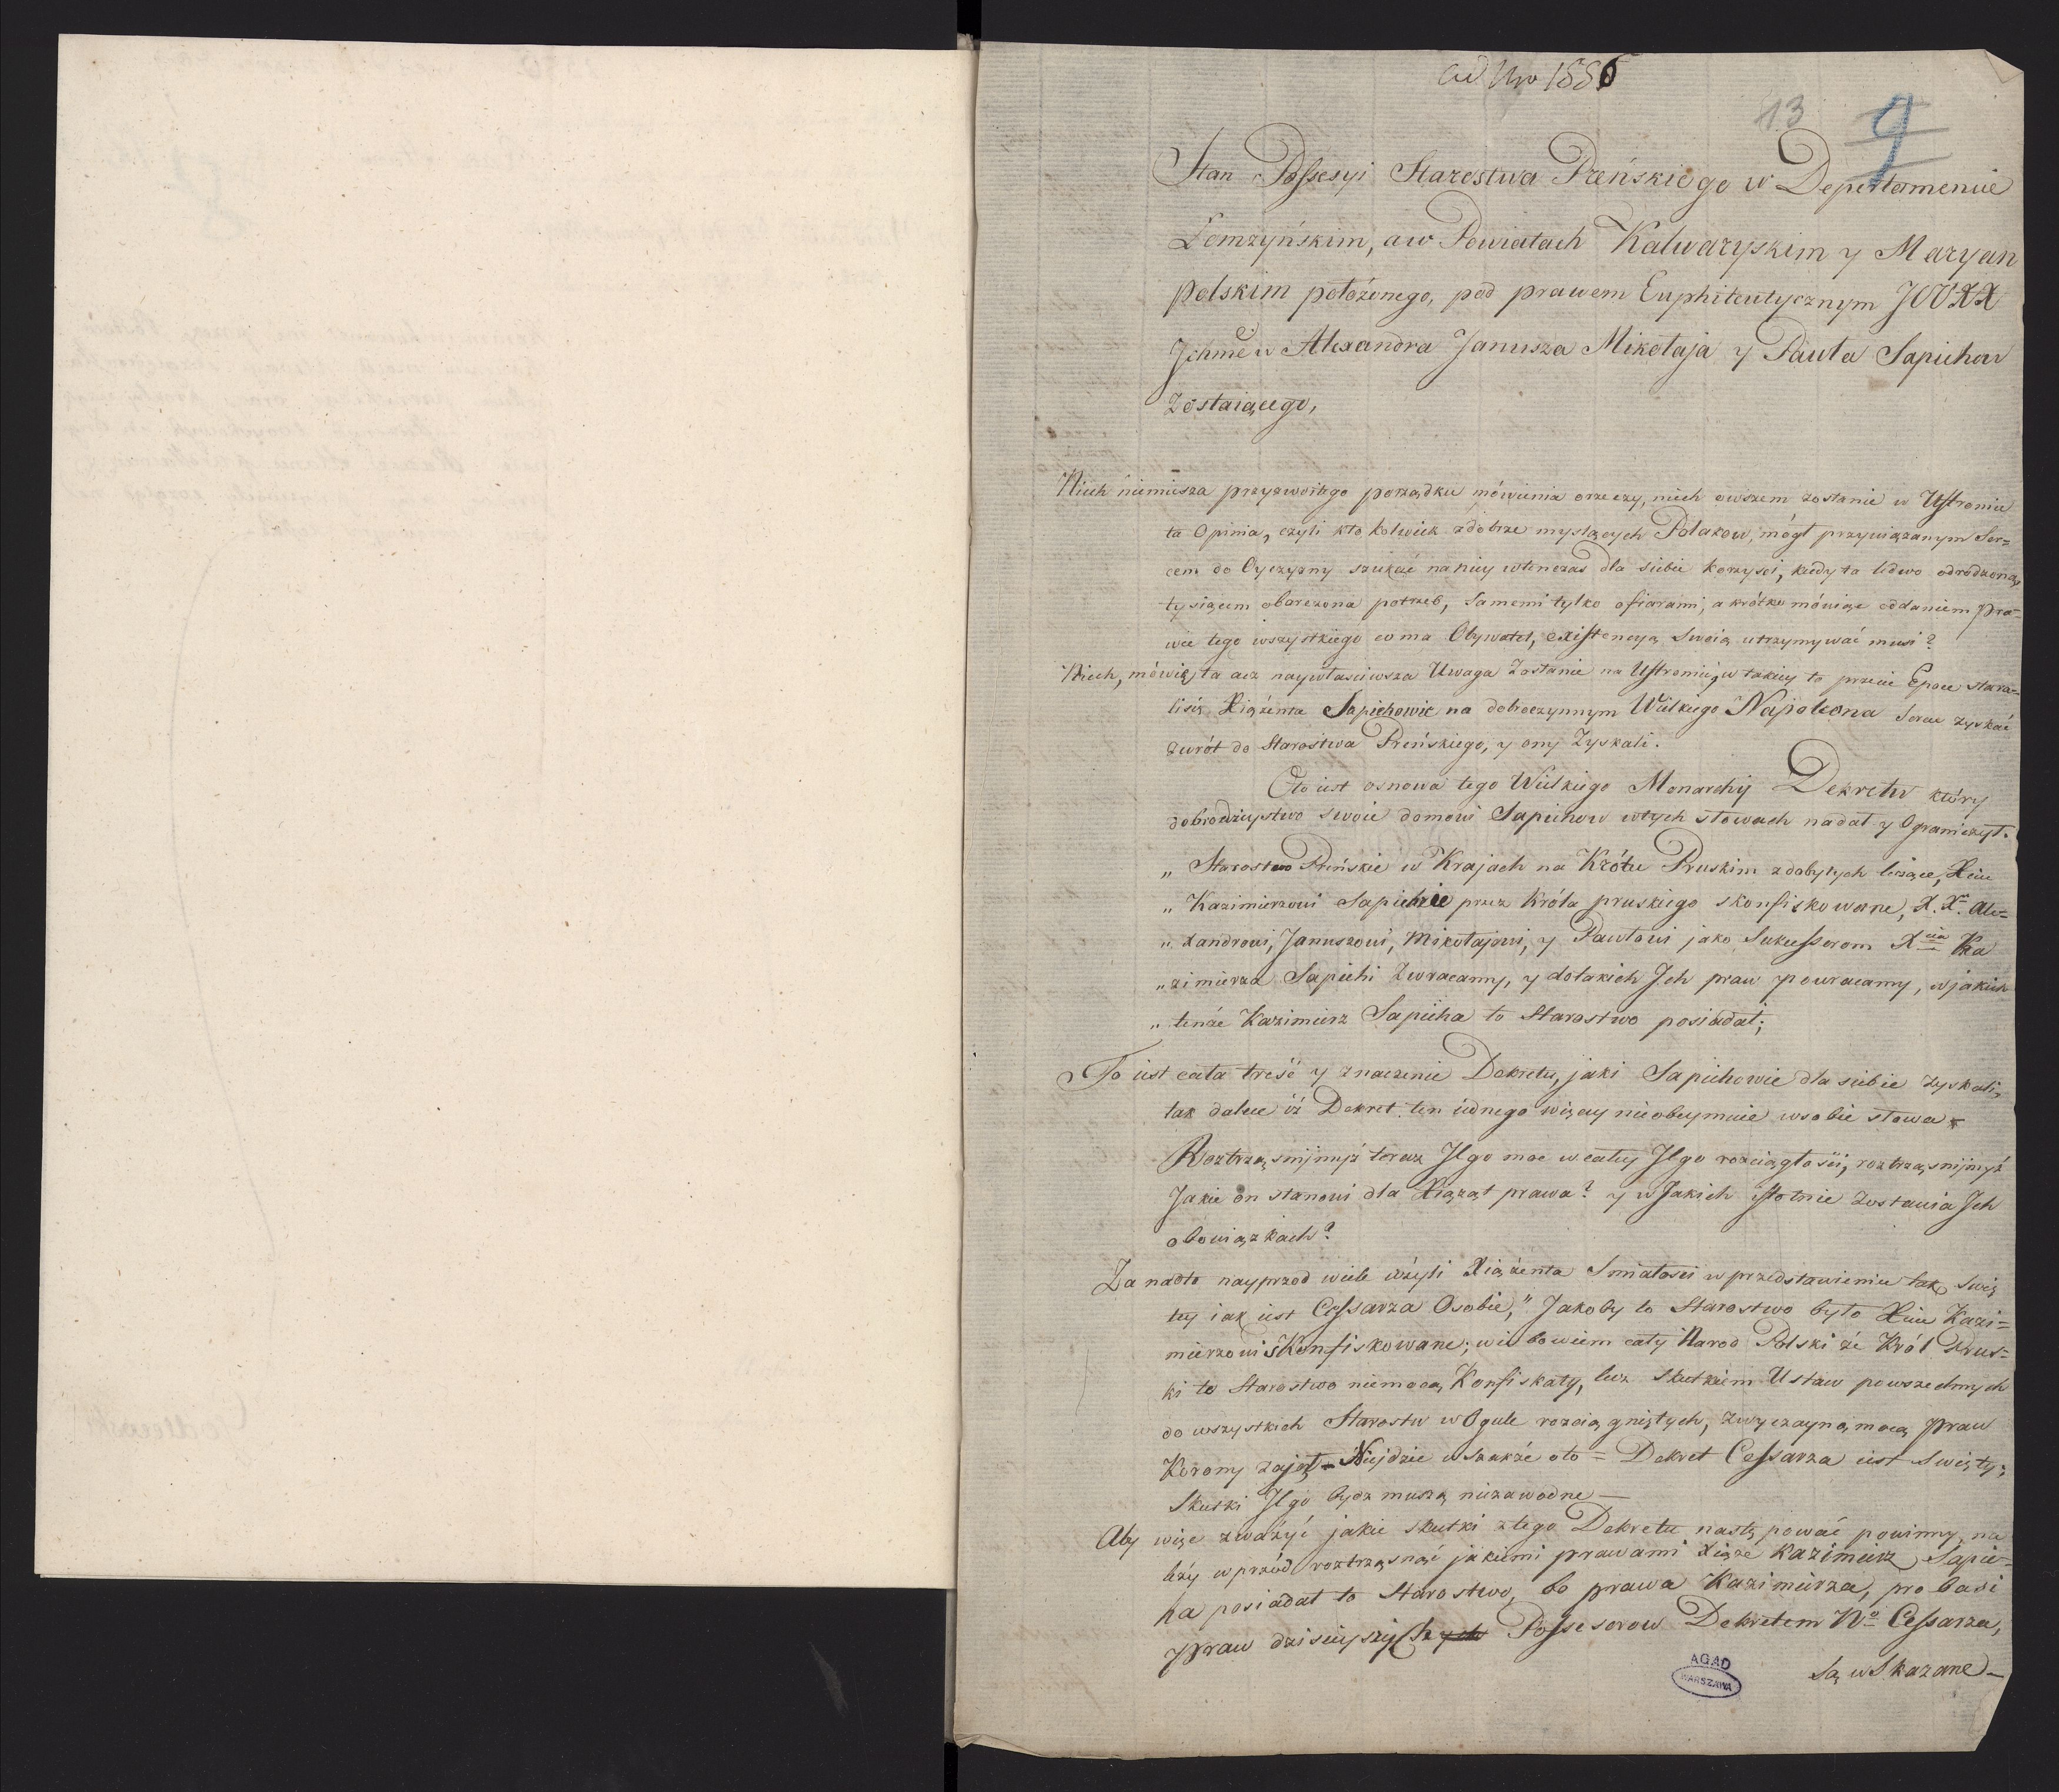 ad Nro 1886
13
9
Stan Possesyi Starostwa Preńskiego w Departamencie
Łomzyńskim, aw Powiatach Kalwaryskim y Maryan
polskim położonego, pod prawem Emphiteutycznym JOO XX
Ichmciow Alexandra Janusza Mikołaja y Pawła Sapiehow
zostaiącego,
Niech niemiesza przyzwoitego porządku mówienia orzeczy, niech owszem zostanie w Ustroniu
ta Opinia, czyli kto kolwiek zdobrze myslących Polakow, mógł przywiązanym Ser=
cem do Oyczyzny szukać naniey wtenczas dla siebie korzysci, kiedy ta ledwo odrodzona,
tysiącem obarczona potrzeb, samemi tylko ofiarami, a krótko mówiąc oddaniem pra=
wie tego wszystkiego co ma Obywatel, existencyą swoią utrzymywać musi?
Niech, mówię, ta acz naywłasciwsza Uwaga zostanie na Ustroniu, w takiey to przecie Epoce stara=
lisię Xiążenta Sapiehowie na dobroczynnym Wielkiego Napoleona Sercu zyskać
zwrót do Starostwa Preńskiego, y ony zyskali.
Oto iest osnowa tego Wielkiego Monarchy Dekretu który
dobrodzieystwo swoie domowi Sapiehow wtych słowach nadał y Ograniczył.
„ Starostwo Preńskie w Krajach na Królu Pruskim zdobytych leżące, Xciu
„ Kazimierzowi Sapiehie przez Króla pruskiego skonfiskowane, X. X. Ale=
„ xandrowi, Januszowi, Mikołajowi, y Pawłowi jako Sukcessorom Xcia Ka
„ zimierza Sapiehi zwracamy, y dotakich Ich praw powracamy, wjakich
„ tenże Kazimierz Sapieha to Starostwo posiadał;
To iest cała treść y znaczenie Dekretu, jaki Sapiehowie dla siebie zyskali,
tak dalece iż Dekret ten iednego więcey nieobeymuie wsobie słowa
Roztrząsnijmyż teraz Jego moc wcałey Jego rozciągłości, roztrząsnijmyż
Jakie on stanowi dla Xiążąt prawa? y w Jakich istotnie zostawia Ich
obowiązkach?
Za nadto nayprzod wiele użyli Xiążenta Smiałosci wprzedstawieniu tak Swię
tey iak iest Cessarza Osobie, " Jakoby to Starostwo było Xciu Kazi=
mierzowi Skonfiskowane; wie bowiem cały Narod Polski że Król Prus=
ki to Starostwo niemocą Konfiskaty, lecz skutkiem Ustaw powszechnych
do wszystkich Starostw w Ogule rozciągniętych, zwyczayną mocą praw
Korony zajął = Niejdzie wszakże oto = Dekret Cessarza iest Swięty;
Skutki Jego bydz muszą niezawodne —
Aby więc zważyć jakie skutki ztego Dekretu nastąpować powinny, na
leży wprzód roztrząsnąć jakiemi prawami Xiąże Kazimierz Sapie=
ha posiadał to Starostwo, bo prawa Kazimierza, pro basi
praw dzisieyszych Possesorow Dekretem No Cessarza,
Są wSkazane —
AGAD
WARSZAWA